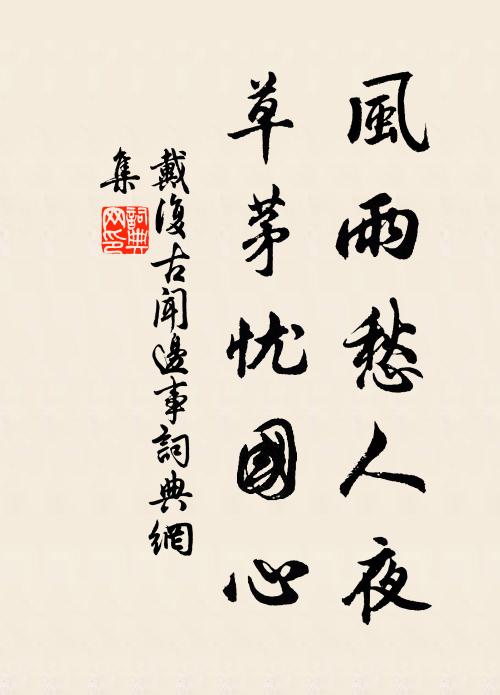 風雨愁人夜
草茅忧國心
戴復古聞邊事詞典網
集
詞典
网印